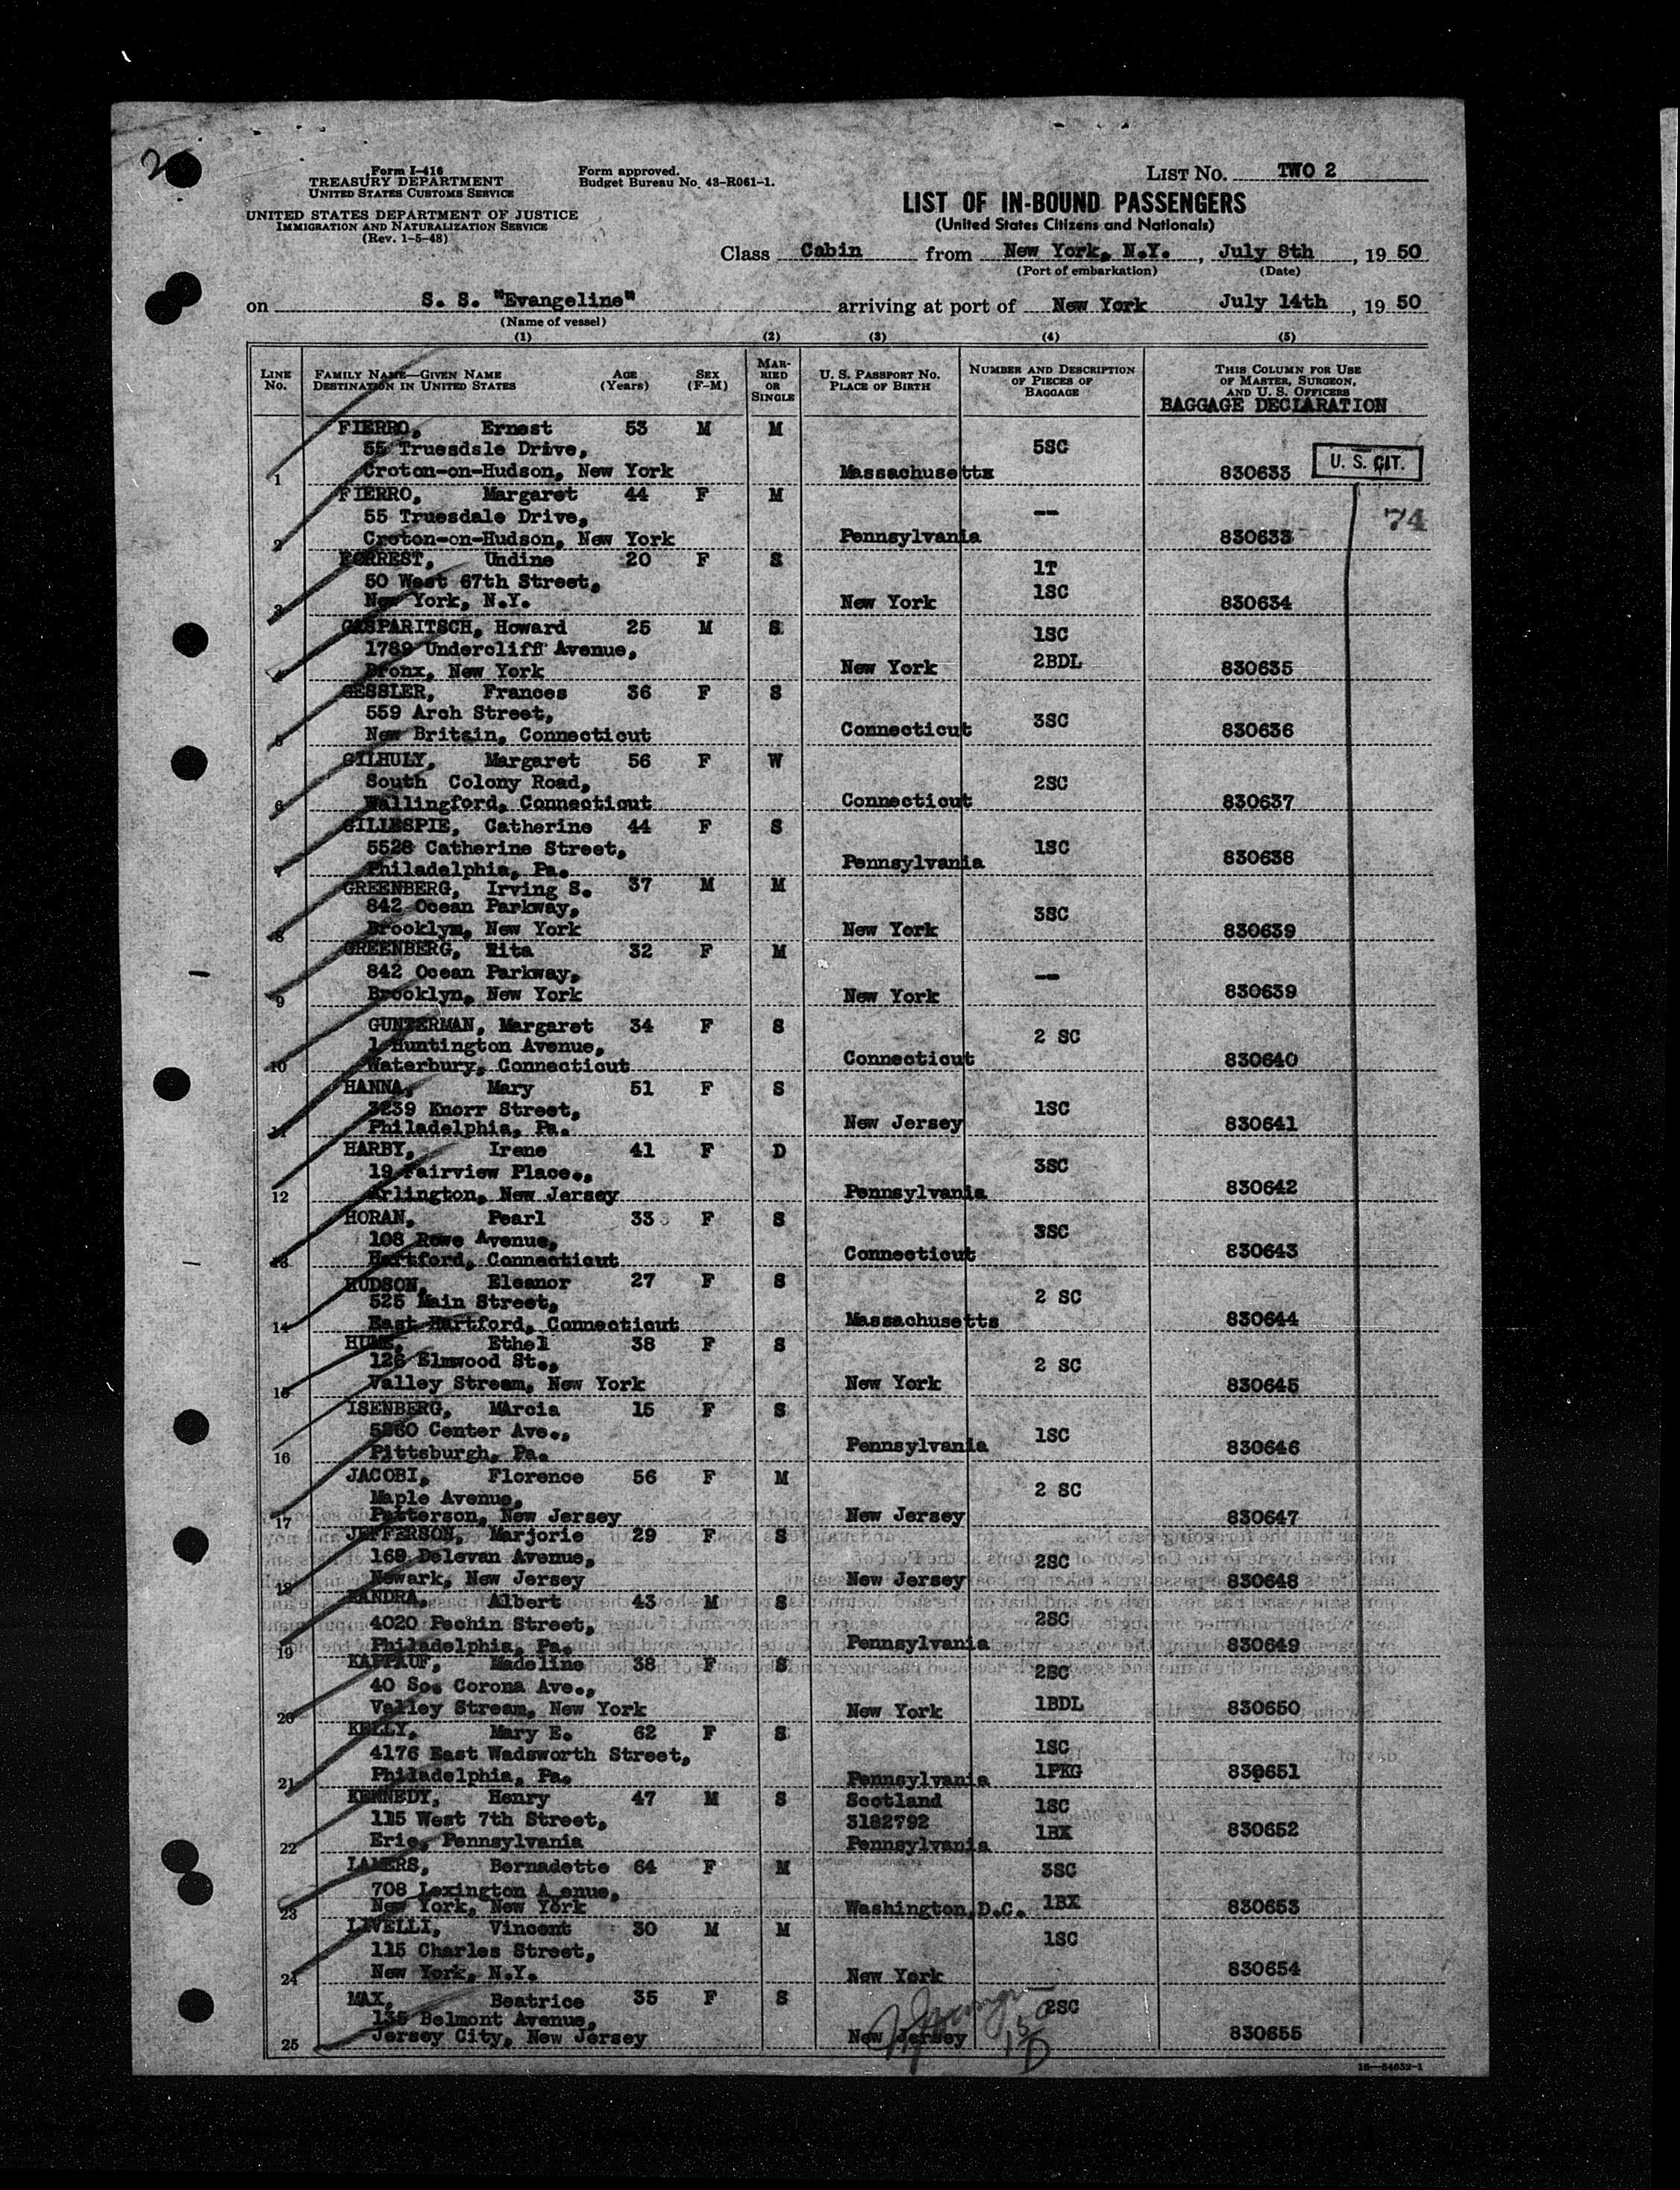 2
Form I-416
TREASURY DEPARTMENT
UNITED STATES CUSTOMS SERVICE
UNITED STATES DEPARTMENT OF JUSTICE
IMMIGRATION AND NATURALIZATION SERVICE
(Rev. 1-5-48)
Form approved.
Budget Bureau No. 43-R061-1.
LIST No. TWO 2
LIST OF IN-BOUND PASSENGERS
(United States Citizens and Nationals)
Class Cabin from New York, N.Y., July 8th, 19 50
(Port of embarkation) (Date)
on S. S. "Evangeline" arriving at port of New York July 14th, 19 50
(Name of vessel)
(1) (2) (3) (4) (5)
LINE No. FAMILY NAME—GIVEN NAME DESTINATION IN UNITED STATES AGE (Years) SEX (F-M) MARRIED OR SINGLE U. S. PASSPORT No. PLACE OF BIRTH NUMBER AND DESCRIPTION OF PIECES OF BAGGAGE THIS COLUMN FOR USE OF MASTER, SURGEON, AND U. S. OFFICERS
BAGGAGE DECLARATION
FIERRO, Ernest 53 M M
55 Truesdsle Drive, 5SC
1 Croton-on-Hudson, New York Massachusetts 830633 U. S. CIT.
FIERRO, Margaret 44 F M
55 Truesdale Drive, -- 74
2 Croton-on-Hudson, New York Pennsylvania 830633
FORREST, Undine 20 F S
50 West 67th Street, 1T
3 New York, N.Y. New York 1SC 830634
GASPARITSCH, Howard 25 M S
1789 Undercliff Avenue, 1SC
4 Bronx, New York New York 2BDL 830635
GESSLER, Frances 36 F S
559 Arch Street, 3SC
5 New Britain, Connecticut Connecticut 830636
GILHULY, Margaret 56 F W
South Colony Road, 2SC
6 Wallingford, Connecticut Connecticut 830637
GILLESPIE, Catherine 44 F S
5528 Catherine Street, 1SC
7 Philadelphia, Pa. Pennsylvania 830638
GREENBERG, Irving S. 37 M M
842 Ocean Parkway, 3SC
8 Brooklyn, New York New York 830639
GREENBERG, Rita 32 F M
842 Ocean Parkway, --
9 Brooklyn, New York New York 830639
GUNTERMAN, Margaret 34 F S
1 Huntington Avenue, 2 SC
10 Waterbury, Connecticut Connecticut 830640
HANNA, Mary 51 F S
3239 Knorr Street, 1SC
11 Philadelphia, Pa. New Jersey 830641
HARBY, Irene 41 F D
19 Fairview Place., 3SC
12 Arlington, New Jersey Pennsylvania 830642
HORAN, Pearl 33 F S
108 Rowe Avenue, 3SC
13 Hartford, Connecticut Connecticut 830643
HUDSON, Eleanor 27 F S
525 Main Street, 2 SC
14 East Hartford, Connecticut Massachusetts 830644
HUME, Ethel 38 F S
126 Elmwood St., 2 SC
15 Valley Stream, New York New York 830645
ISENBERG, MArcia 15 F S
Center Ave., 1SC
16 Pittsburgh, Pa. Pennsylvania 830646
JACOBI, Florence 56 F M
Maple Avenue, 2 SC
17 Patterson, New Jersey New Jersey 830647
JEFFERSON, Marjorie 29 F S
169 Delevan Avenue, 2SC
18 Newark, New Jersey New Jersey 830648
KANDRA, Albert 43 M S
4020 Pechin Street, 2SC
19 Philadelphia, Pa. Pennsylvania 830649
KAPPAUF, Madeline 38 F S
40 So. Corona Ave., 2SC
20 Valley Stream, New York New York 1BDL 830650
KELLY, Mary E. 62 F S
4176 East Wadsworth Street, 1SC
21 Philadelphia, Pa. Pennsylvania 1PKG 830651
KENNEDY, Henry 47 M S Scotland 1SC
115 West 7th Street, 3182792
22 Erie, Pennsylvania Pennsylvania 1BX 830652
LAMERS, Bernadette 64 F M 3SC
708 Lexington A enue,
23 New York, New York Washington, D.C. 1BX 830653
LIVELLI, Vincent 30 M M 1SC
115 Charles Street,
24 New York, N.Y. New York 830654
MAX, Beatrice 35 F S 2SC
135 Belmont Avenue,
25 Jersey City, New Jersey New Jersey 830655
16—54652-1